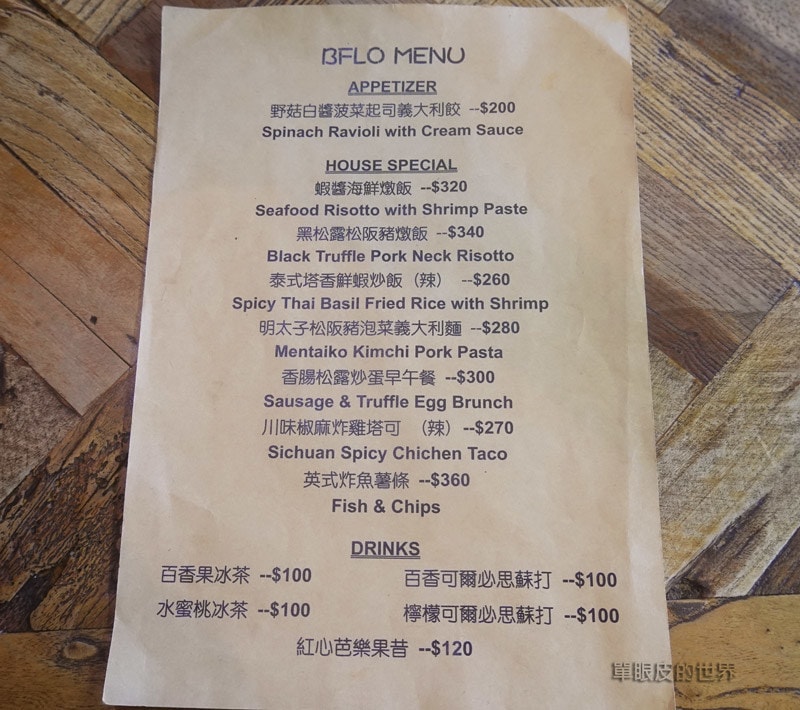 BFLO MENU
APPETIZER
野菇白醬菠菜起司義大利餃 --$200
Spinach Ravioli with Cream Sauce
HOUSE SPECIAL
蝦醬海鮮燉飯 --$320
Seafood Risotto with Shrimp Paste
黑松露松阪豬燉飯 --$340
Black Truffle Pork Neck Risotto
泰式塔香鮮蝦炒飯（辣） --$260
Spicy Thai Basil Fried Rice with Shrimp
明太子松阪豬泡菜義大利麵 --$280
Mentaiko Kimchi Pork Pasta
香腸松露炒蛋早午餐 --$300
Sausage & Truffle Egg Brunch
川味椒麻炸雞塔可 （辣） --$270
Sichuan Spicy Chichen Taco
英式炸魚薯條 --$360
Fish & Chips
DRINKS
百香果冰茶 --$100 百香可爾必思蘇打 --$100
水蜜桃冰茶 --$100 檸檬可爾必思蘇打 --$100
紅心芭樂果昔 --$120
單眼皮的世界